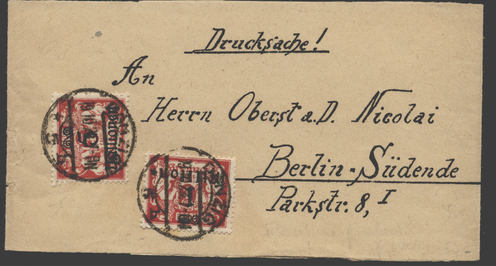 Drucksache!
An
Herrn Oberst a.D. Nicolai
Berlin-Südende
Parkstr. 8, I